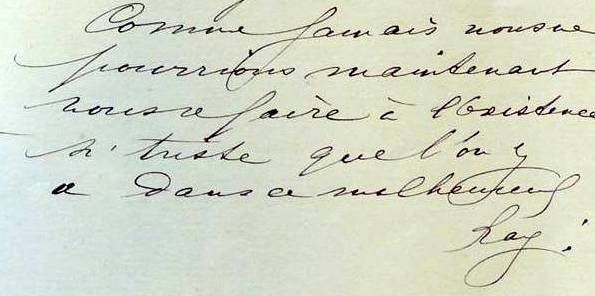 Comme jamais nous ne
pourrions maintenant
nous refaire à l'existence
si triste que l'on y
a dans ce malheureux
Pays.